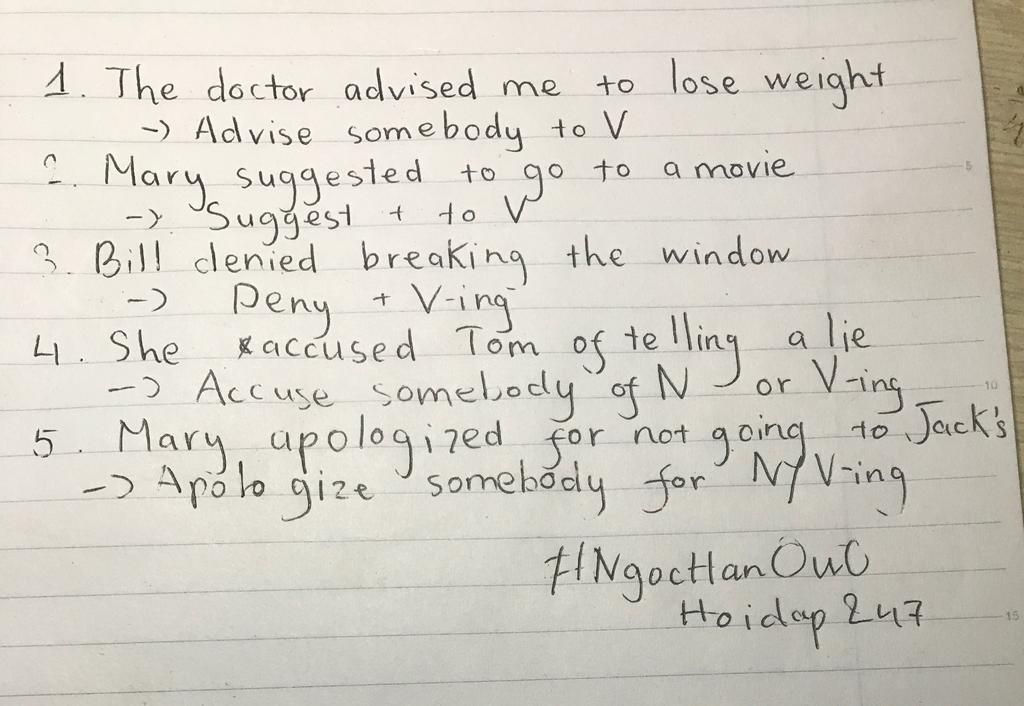 1. The doctor advised me to lose weight
-> Advise somebody to V
2. Mary suggested to go to a movie
-> Suggest + to V
3. Bill denied breaking the window
-> Deny + V-ing
4. She accused Tom of telling a lie
-> Accuse somebody of N or V-ing
5. Mary apologized for not going to Jack's
-> Apologize somebody for N/V-ing
#NgocHanOwO
Hoidap247
5
10
15